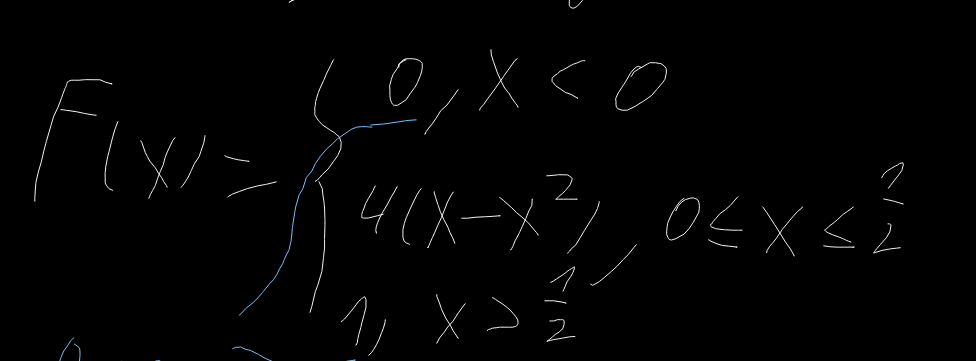 F(x) = { 0, x < 0
4(x - x²), 0 ≤ x ≤ 1/2
1, x > 1/2